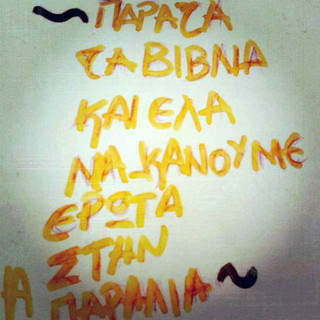 ~ ΠΑΡΑΤΑ
ΤΑ ΒΙΒΛΙΑ
ΚΑΙ ΕΛΑ
ΝΑ ΚΑΝΟΥΜΕ
ΕΡΩΤΑ
ΣΤΗΝ
Α ΠΑΡΑΛΙΑ ~